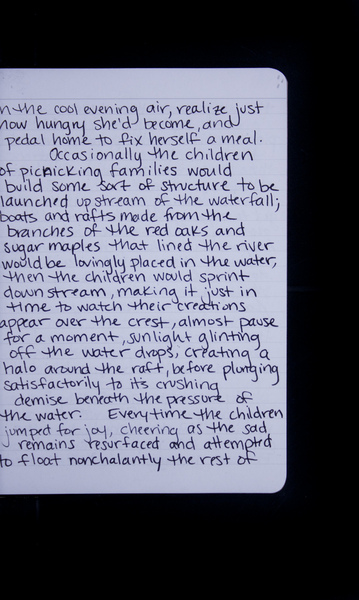 n the cool evening air, realize just
how hungry she'd become, and
pedal home to fix herself a meal.
Occasionally the children
of picnicking families would
build some sort of structure to be
launched upstream of the waterfall;
boats and rafts made from the
branches of the red oaks and
sugar maples that lined the river
would be lovingly placed in the water,
then the children would sprint
downstream, making it just in
time to watch their creations
appear over the crest, almost pause
for a moment, sunlight glinting
off the water drops, creating a
halo around the raft, before plunging
satisfactorily to it's crushing
demise beneath the pressure of
the water. Everytime the children
jumped for joy, cheering as the sad
remains resurfaced and attempted
to float nonchalantly the rest of